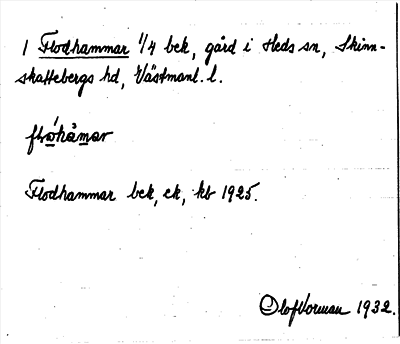 1 Flodhammar 1/4 bek, gård i Heds sn, Skinn-
skattebergs hd, Västmanl. l.
Flodhammar bek, ek, kb 1925.
Olof Norman 1932.